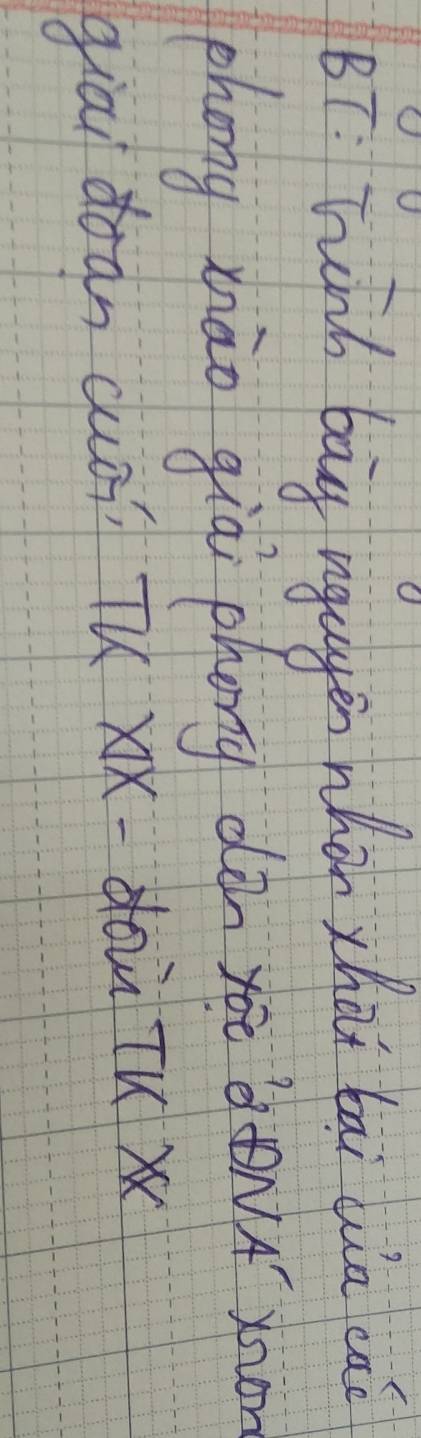 BT: Trình bày nguyên nhân thất bại của các
phong trào giải phóng dân tộc ở ĐNÁ trong
giai đoạn cuối TK XIX - đầu TK XX